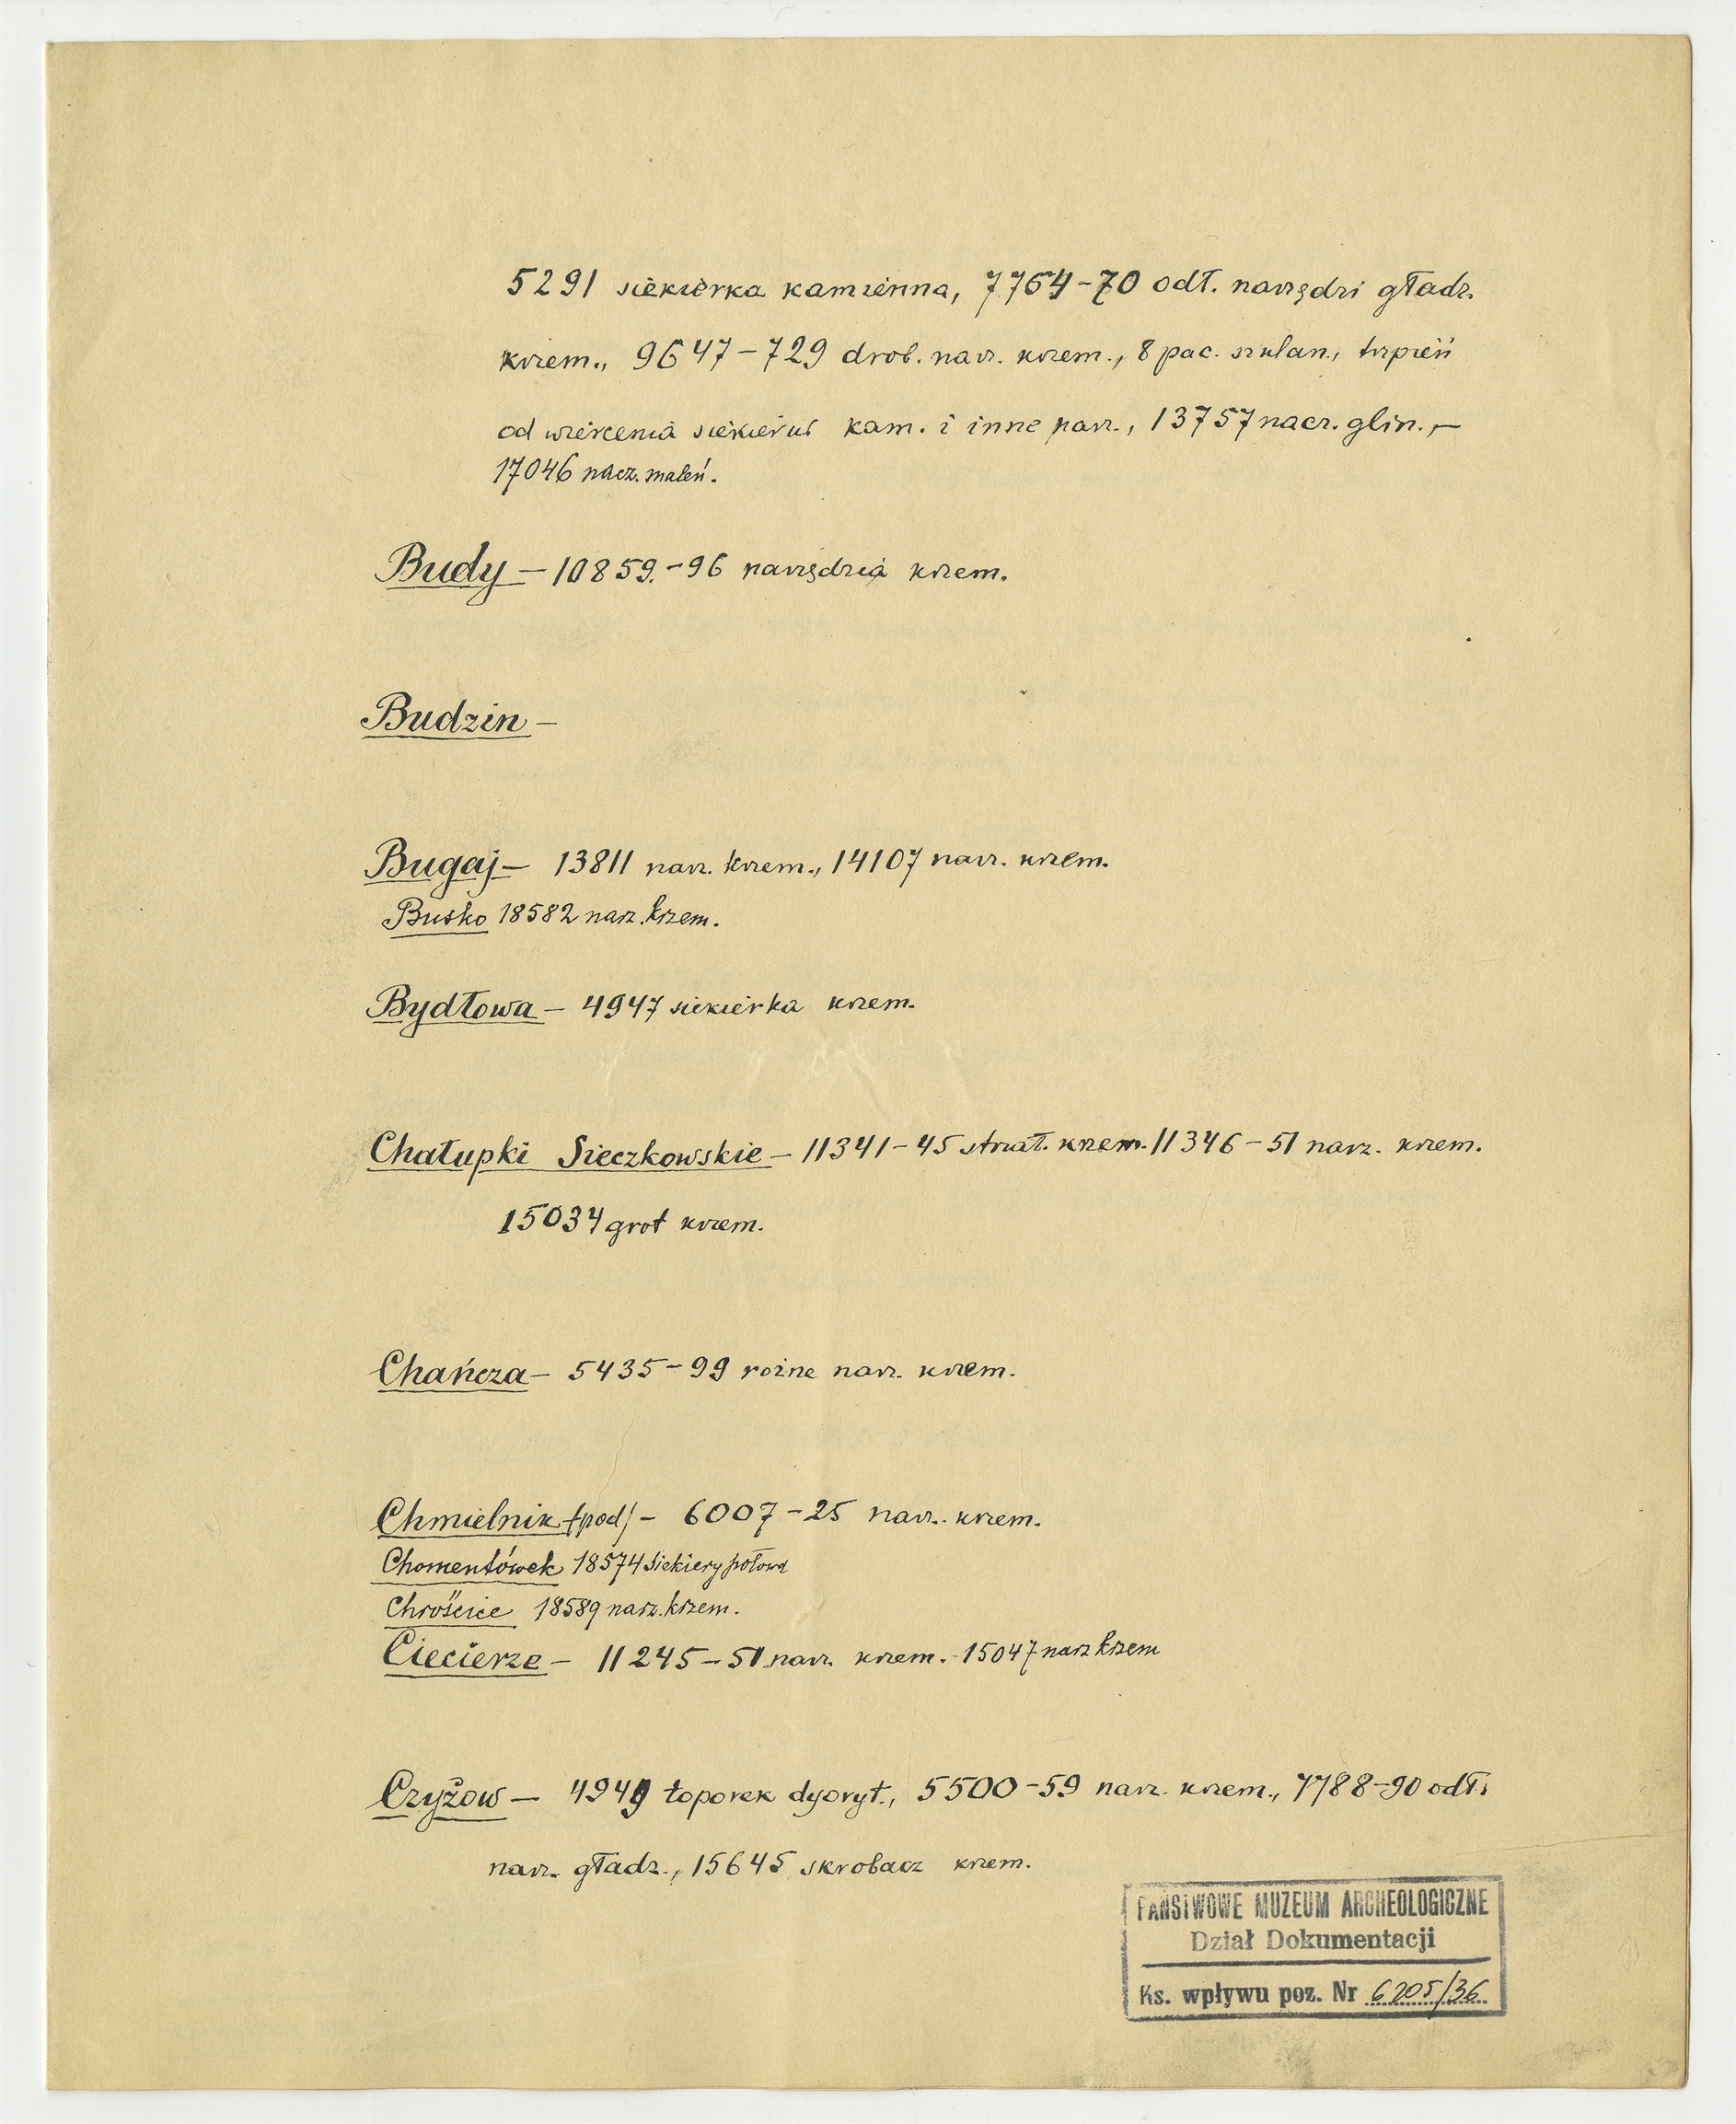 5291 siekierka kamienna, 7764-70 odł. narzędzi gładz.
krzem., 9647-729 drob. narz. krzem., 8 pac. szklan., trzpień
od wiercenia siekierki kam. i inne narz., 13757 nacz. glin., -
17046 nacz. maleń.
Budy - 10859.-96 narzędzia krzem.
Budzin -
Bugaj - 13811 narz. krzem., 14107 narz. krzem.
Busko 18582 narz. krzem.
Bydłowa - 4947 siekierka krzem.
Chałupki Sieczkowskie - 11341-45 strzał. krzem. 11346-51 narz. krzem.
15034 grot krzem.
Chańcza - 5435-99 rożne narz. krzem.
Chmielnik (pod) - 6007-25 narz. krzem.
Chomentówek 18574 siekiery połowa
Chrościce 18589 narz. krzem.
Ciecierze - 11245-51 narz. krzem. 15047 narz krzem
Czyżow - 4949 toporek dyoryt., 5500-59 narz. krzem., 7788-90 odł.
narz. gładz., 15645 skrobacz krzem.
PAŃSTWOWE MUZEUM ARCHEOLOGICZNE
Dział Dokumentacji
Ks. wpływu poz. Nr 6205/36